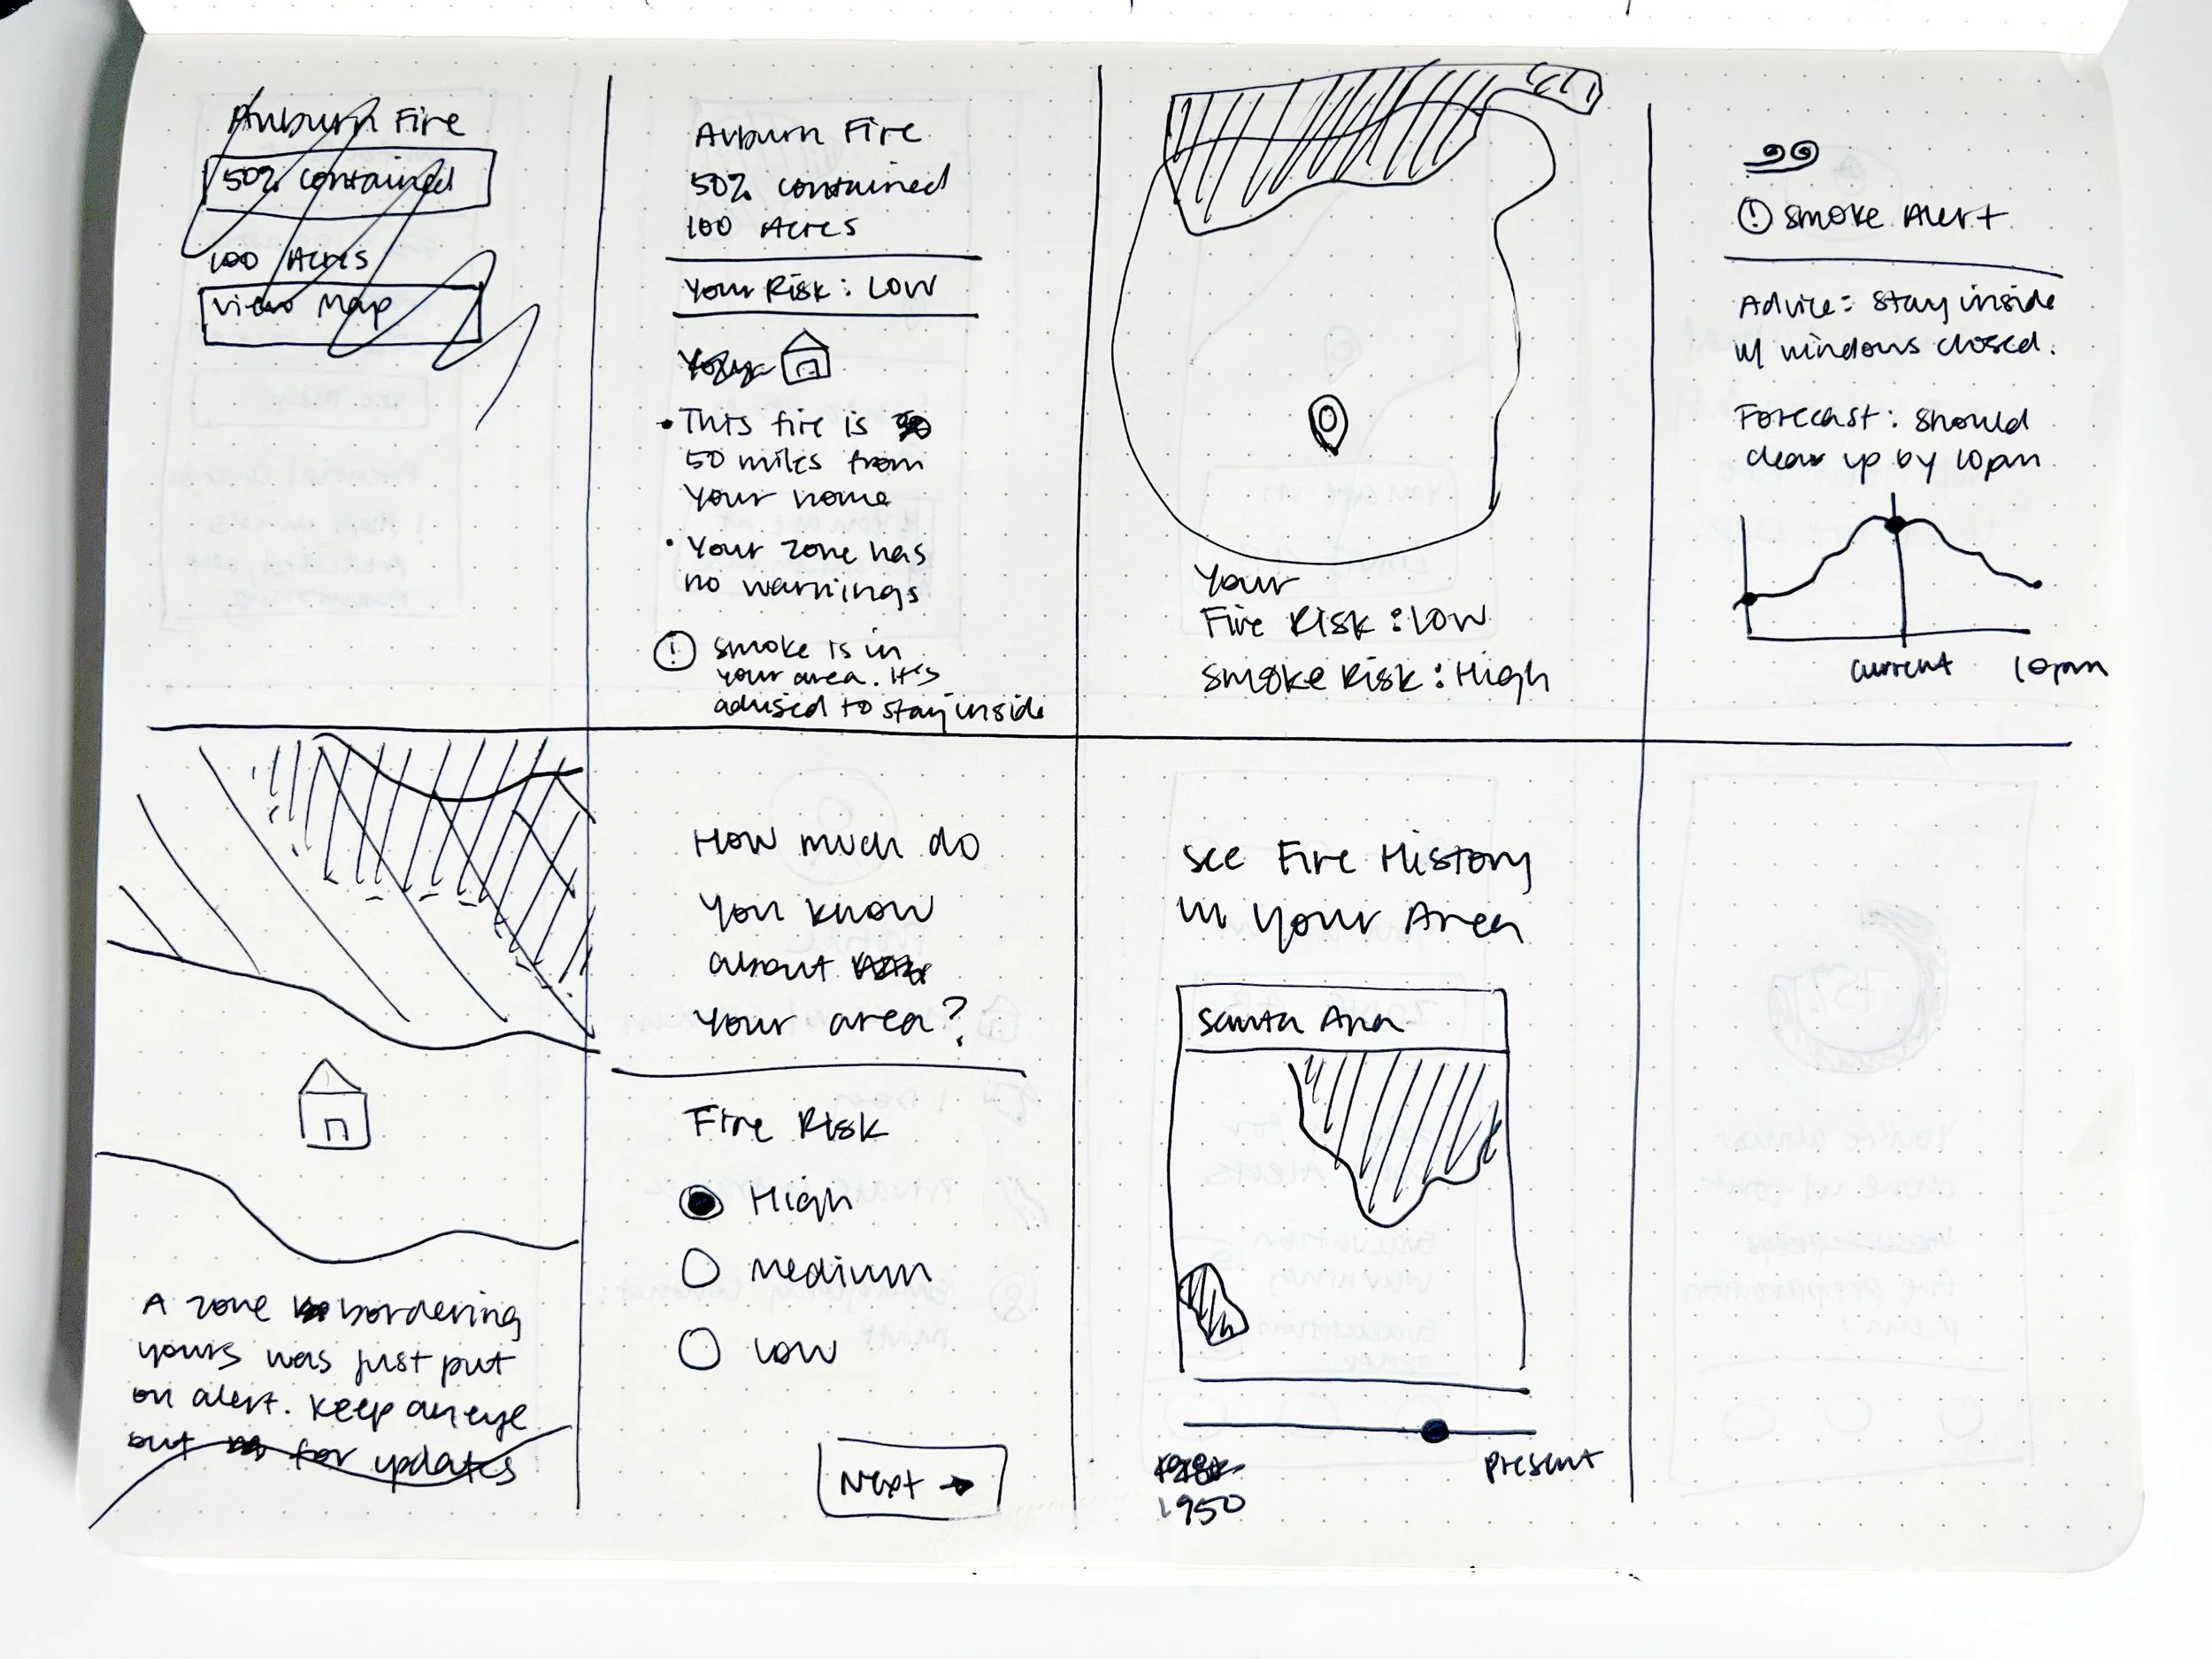 Auburn Fire
50% contained
100 Acres
View Map
Auburn Fire
50% contained
100 Acres
Your Risk: Low
This fire is
50 miles from
your home
Your zone has
no warnings
! smoke is in
your area. It's
advised to stay inside
Your
Fire Risk: Low
Smoke Risk: High
! Smoke Alert
Advice: Stay inside
w/ windows closed.
Forecast: Should
clear up by 10pm
current 10pm
A zone bordering
yours was just put
on alert. Keep an eye
out for updates
How much do
you know
about
your area?
Fire Risk
High
Medium
Low
Next →
See Fire History
in Your Area
Santa Ana
Present
1950